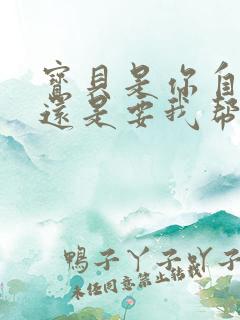 寶貝是你自
還是要我幫
鴨子丫子吖子
未任同意禁止转載